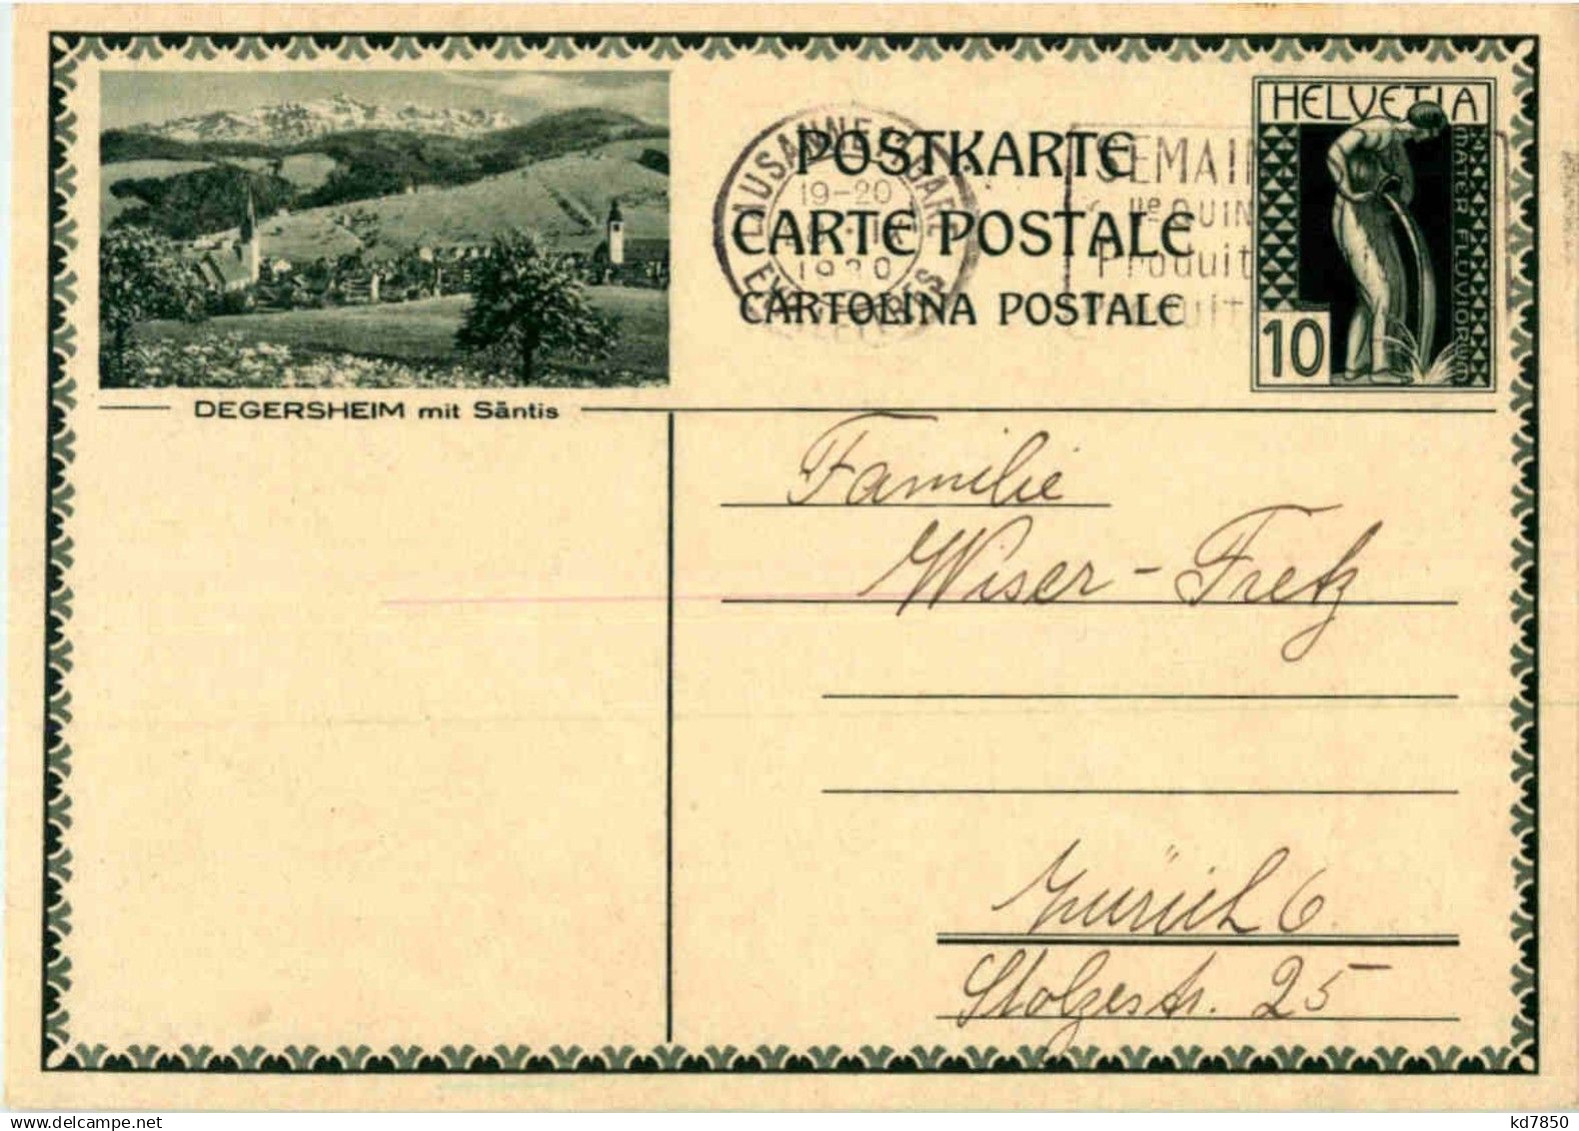 HELVETIA
MATER FLUVIORUM
10
POSTKARTE
CARTE POSTALE
CARTOLINA POSTALE
LAUSANNE GARE
19-20
DEGERSHEIM mit Säntis
Familie
Wiser-Fretz
Zürich 6
Stolzestr. 25
kd7850